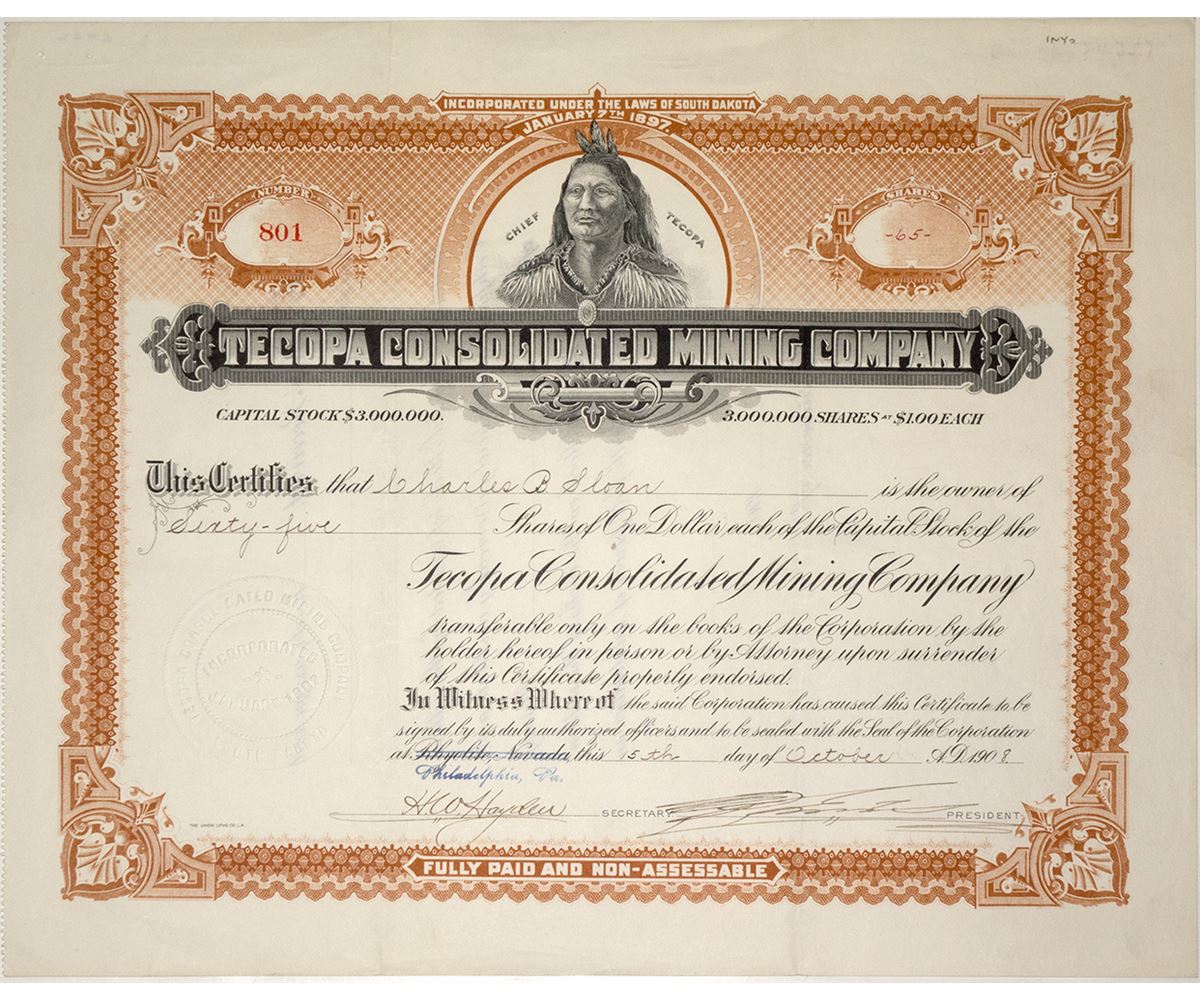 INYO
INCORPORATED UNDER THE LAWS OF SOUTH DAKOTA
JANUARY 7TH 1897.
NUMBER
801
CHIEF TECOPA
SHARES
-65-
TECOPA CONSOLIDATED MINING COMPANY
CAPITAL STOCK $3.000.000. 3.000.000 SHARES AT $1.00 EACH
This Certifies that Charles B Sloan is the owner of
Sixty-five Shares of One Dollar each of the Capital Stock of the
Tecopa Consolidated Mining Company
transferable only on the books of the Corporation by the
holder hereof in person or by Attorney upon surrender
of this Certificate properly endorsed.
In Witness Where of the said Corporation has caused this Certificate to be
signed by its duly authorized officers and to be sealed with the Seal of the Corporation
at Rhyolite, Nevada, this 15th day of October A.D. 1908
Philadelphia, Pa.
H.W. Hayden SECRETARY PRESIDENT
THE UNION LITHO. CO. L.A.
TECOPA CONSOLIDATED MINING COMPANY
INCORPORATED
FULLY PAID AND NON-ASSESSABLE